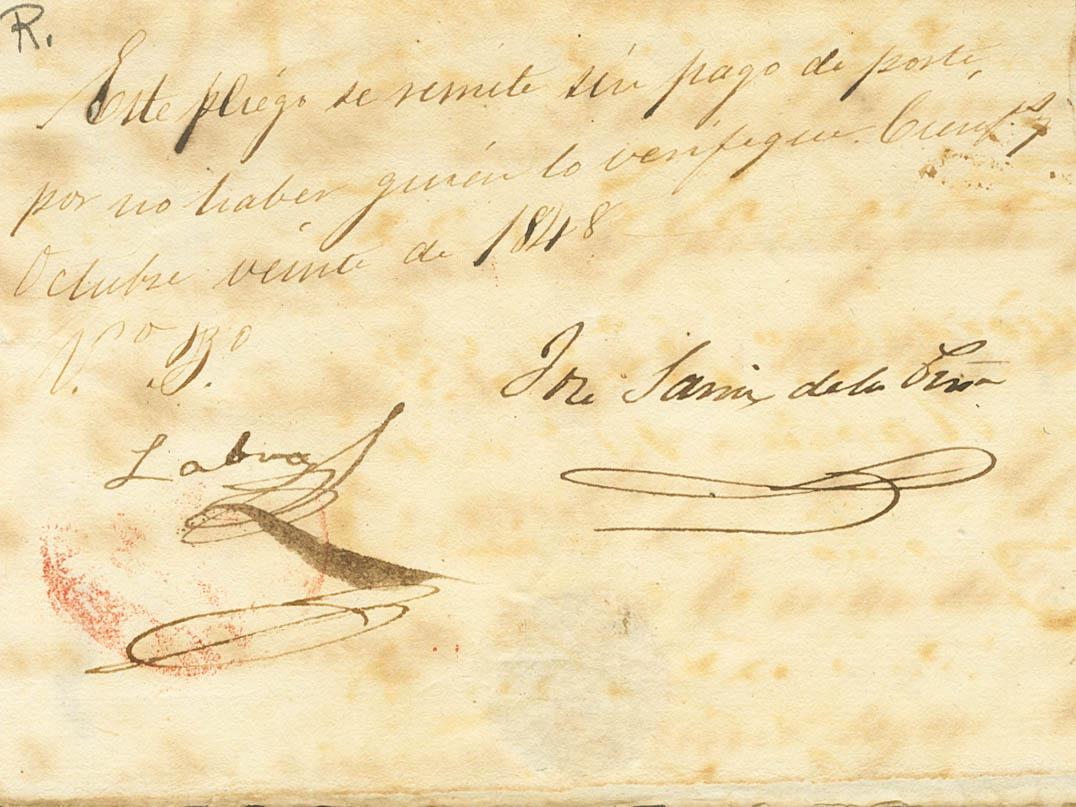 R.
Este pliégo se remite sin pago de porte,
por no haber quién lo verifique. Cienf.s y
Octubre veinte de 1848
V.o B.o
José de la Peña
Labra